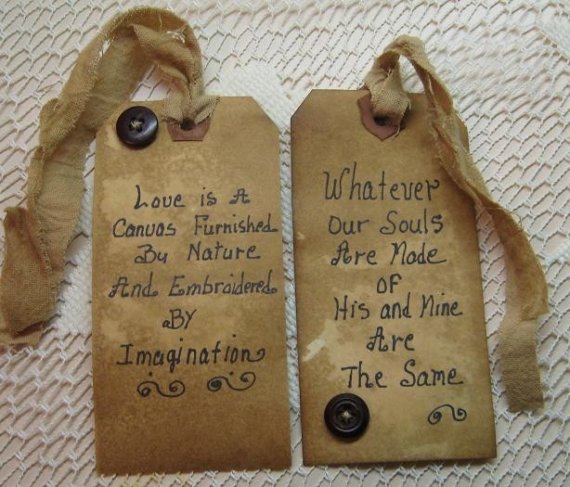 Love is A
Canvas Furnished
By Nature
And Embroidered
BY
Imagination
Whatever
Our Souls
Are Made
OF
His and Mine
Are
The Same